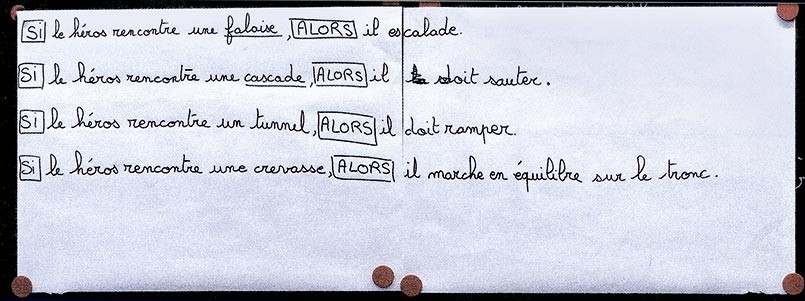 Si le héros rencontre une falaise, ALORS il escalade.
Si le héros rencontre une cascade, ALORS il doit sauter.
Si le héros rencontre un tunnel, ALORS il doit ramper.
Si le héros rencontre une crevasse, ALORS il marche en équilibre sur le tronc.